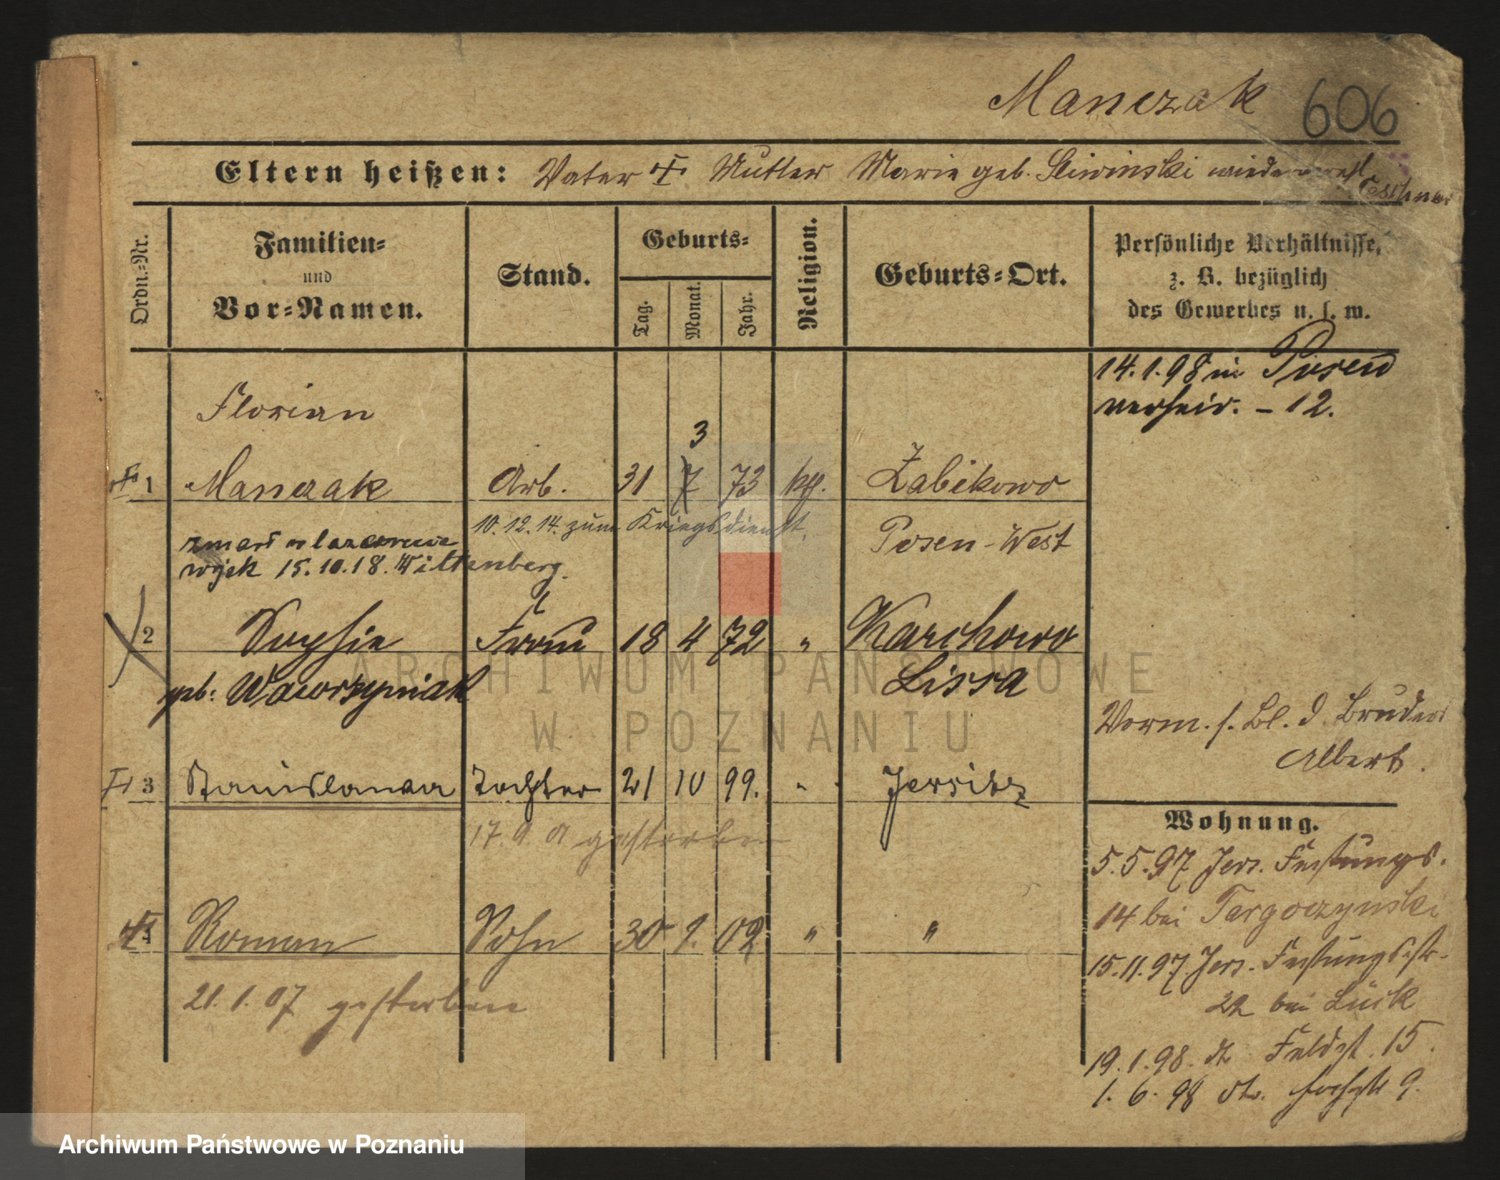 Manczak 606
Eltern heißen: Vater † Mutter Marie geb. Sliwinski
Ordn.-Nr.
Familien-
und
Vor-Namen.
Stand.
Geburts-
Tag.
Monat.
Jahr.
Religion.
Geburts-Ort.
Persönliche Verhältnisse,
z. B. bezüglich
des Gewerbes u. s. w.
14.1.98 in Posen
verheir. - 12.
Florian
3
1 Manczak Arb. 31 7 73 kg. Żabikowo
10.12.14. zum Kriegsdienst.
Posen-West
zmarł w
15.10.18. Wittenberg.
2 Sophie Frau 18 4 72 " Karchowo
geb. Wawrzyniak Lissa
Vorm. s. Bl. d. Bruders
Albert.
3 Stanislawa Tochter 21 10 99. " Jersitz
gestorben
Wohnung.
5.5.97 Jers. Festungs.
14 bei Targoczynski
4 Roman Sohn 30 02 " "
15.11.97. Jers. Festungsstr.
21.1.07 gestorben
22 bei Lück
19.1.98. Feldst. 15.
1.6.98 9.
ARCHIWUM PAŃSTWOWE
W POZNANIU
Archiwum Państwowe w Poznaniu